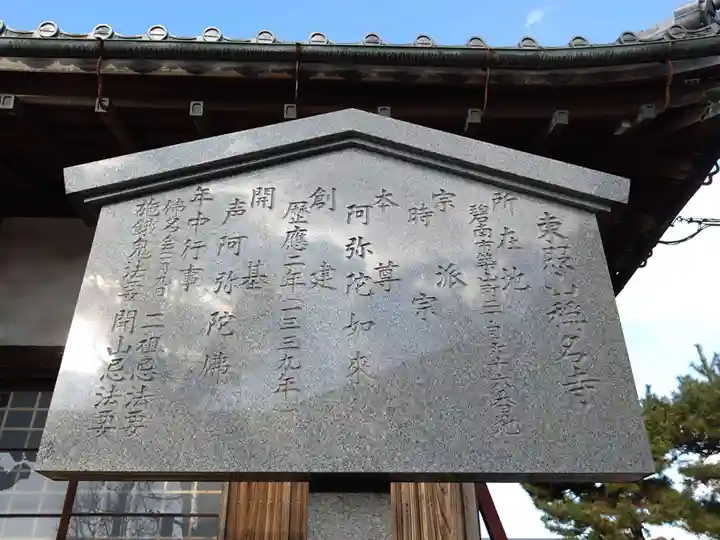 東照山稱名寺
所在地
碧南市築山町二丁目六十六番地
宗派
時宗
本尊
阿弥陀如來
創建
歴應二年(一三三九年)
開基
声阿弥陀佛
年中行事
佛名会一月九日 二祖忌法要
施餓鬼法要 開山忌法要